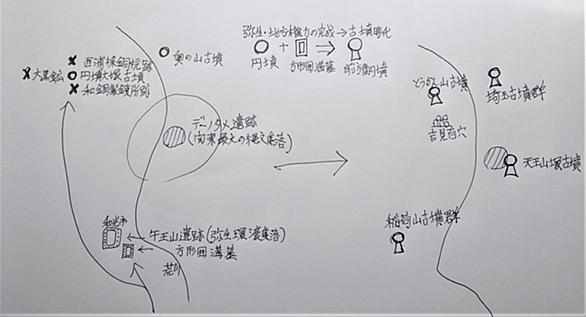 弥生・地方権力の完成→古墳時代
円墳 + 方形囲溝墓 ⇒ 前方後円墳
奥の山古墳
西浦採銅坑跡
大黒鉱
円墳大塚古墳
和銅製錬所跡
デーノタメ遺跡
(関東最大の縄文集落)
とうかん山古墳
埼玉古墳群
吉見百穴
天王山塚古墳
稲荷山古墳群
和光市
午王山遺跡(弥生環濠集落)
方形囲溝墓
荒川